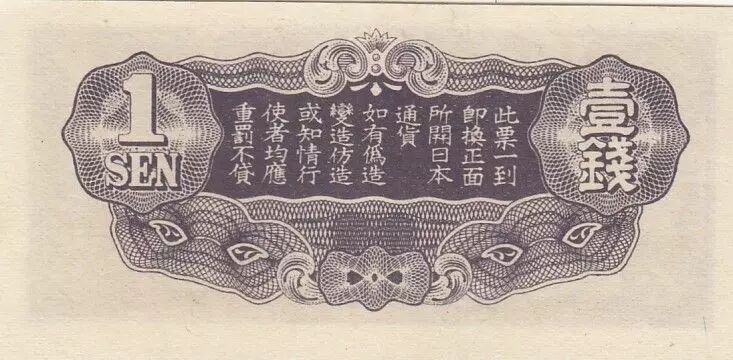 壹錢
此票一到
即換正面
所開日本
通貨
如有偽造
變造仿造
或知情行
使者均應
重罰不貸
1
SEN